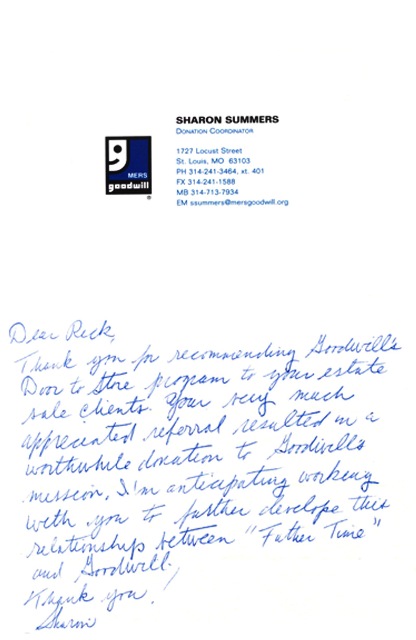 SHARON SUMMERS
DONATION COORDINATOR
1727 Locust Street
St. Louis, MO 63103
PH 314-241-3464, xt. 401
FX 314-241-1588
MB 314-713-7934
EM ssummers@mersgoodwill.org
g
MERS
goodwill
®
Dear Rick,
Thank you for recommending Goodwill's
Door to Store program to your estate
sale clients. Your very much
appreciated referral resulted in a
worthwhile donation to Goodwill's
mission. I'm anticipating working
with you to further develope this
relationship between "Father Time"
and Goodwill.
Thank you!
Sharon